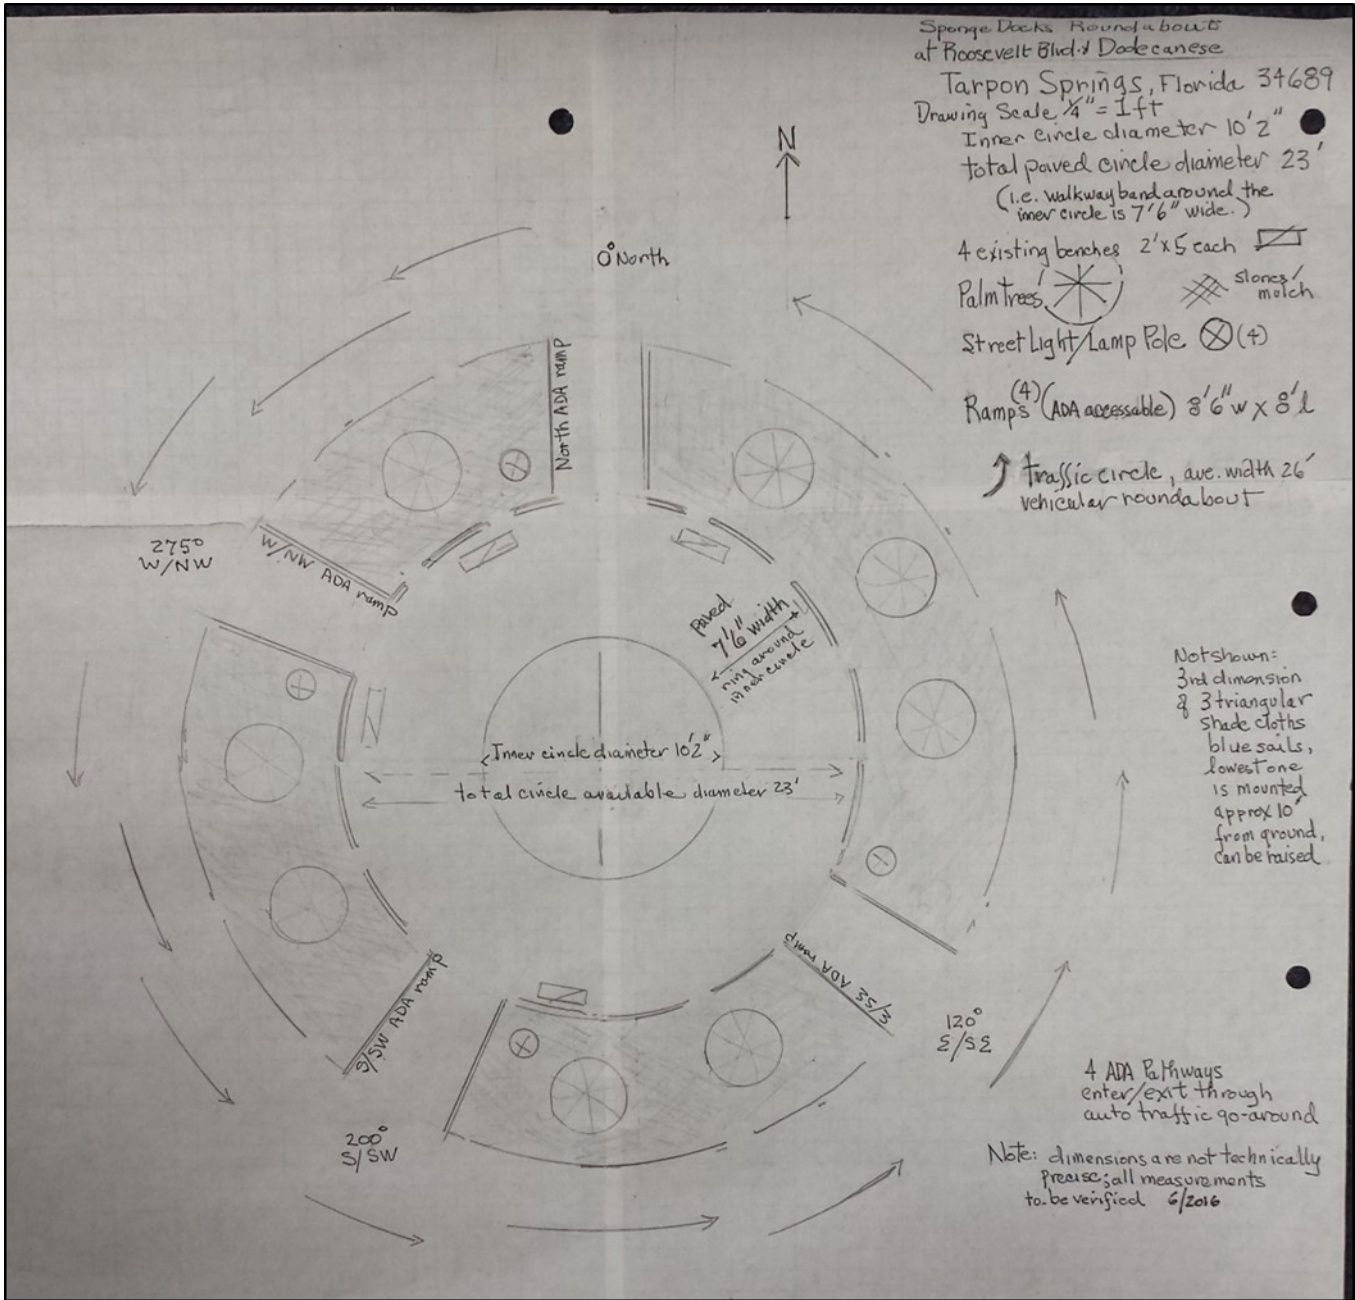 Sponge Docks Roundabout
at Roosevelt Blvd. & Dodecanese
Tarpon Springs, Florida 34689
Drawing Scale 1/4" = 1ft
Inner circle diameter 10'2"
total paved circle diameter 23'
(i.e. walkway band around the
inner circle is 7'6" wide.)
4 existing benches 2'x5' each
Palm trees
stones/
mulch
Street Light/Lamp Pole (4)
Ramps (4) (ADA accessable) 8'6" w x 8' l
traffic circle, ave. width 26'
vehicular roundabout
N
0° North
North ADA ramp
275°
W/NW
W/NW ADA ramp
paved
7'6" width
ring around
inner circle
Inner circle diameter 10'2"
total circle available diameter 23'
Not shown:
3rd dimension
& 3 triangular
shade cloths
blue sails,
lowest one
is mounted
approx 10'
from ground,
can be raised.
S/SW ADA ramp
E/SE ADA ramp
120°
E/SE
200°
S/SW
4 ADA Pathways
enter/exit through
auto traffic go-around
Note: dimensions are not technically
precise; all measurements
to be verified 6/2016